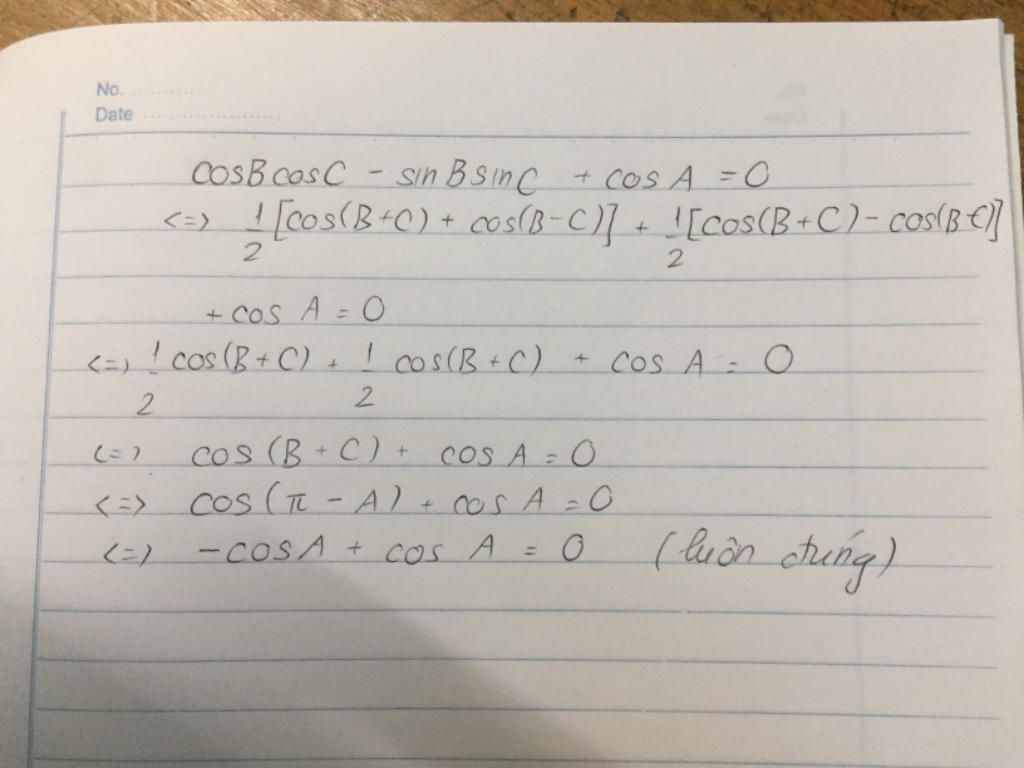 No. ..........
Date ....................
cosBcosC - sinBsinC + cos A = 0
<=> 1/2 [cos(B+C) + cos(B-C)] + 1/2 [cos(B+C) - cos(B-C)]
+ cos A = 0
<=> 1/2 cos(B+C) + 1/2 cos(B+C) + cos A = 0
<=> cos (B+C) + cos A = 0
<=> cos (π - A) + cos A = 0
<=> -cosA + cos A = 0 (luôn đúng)